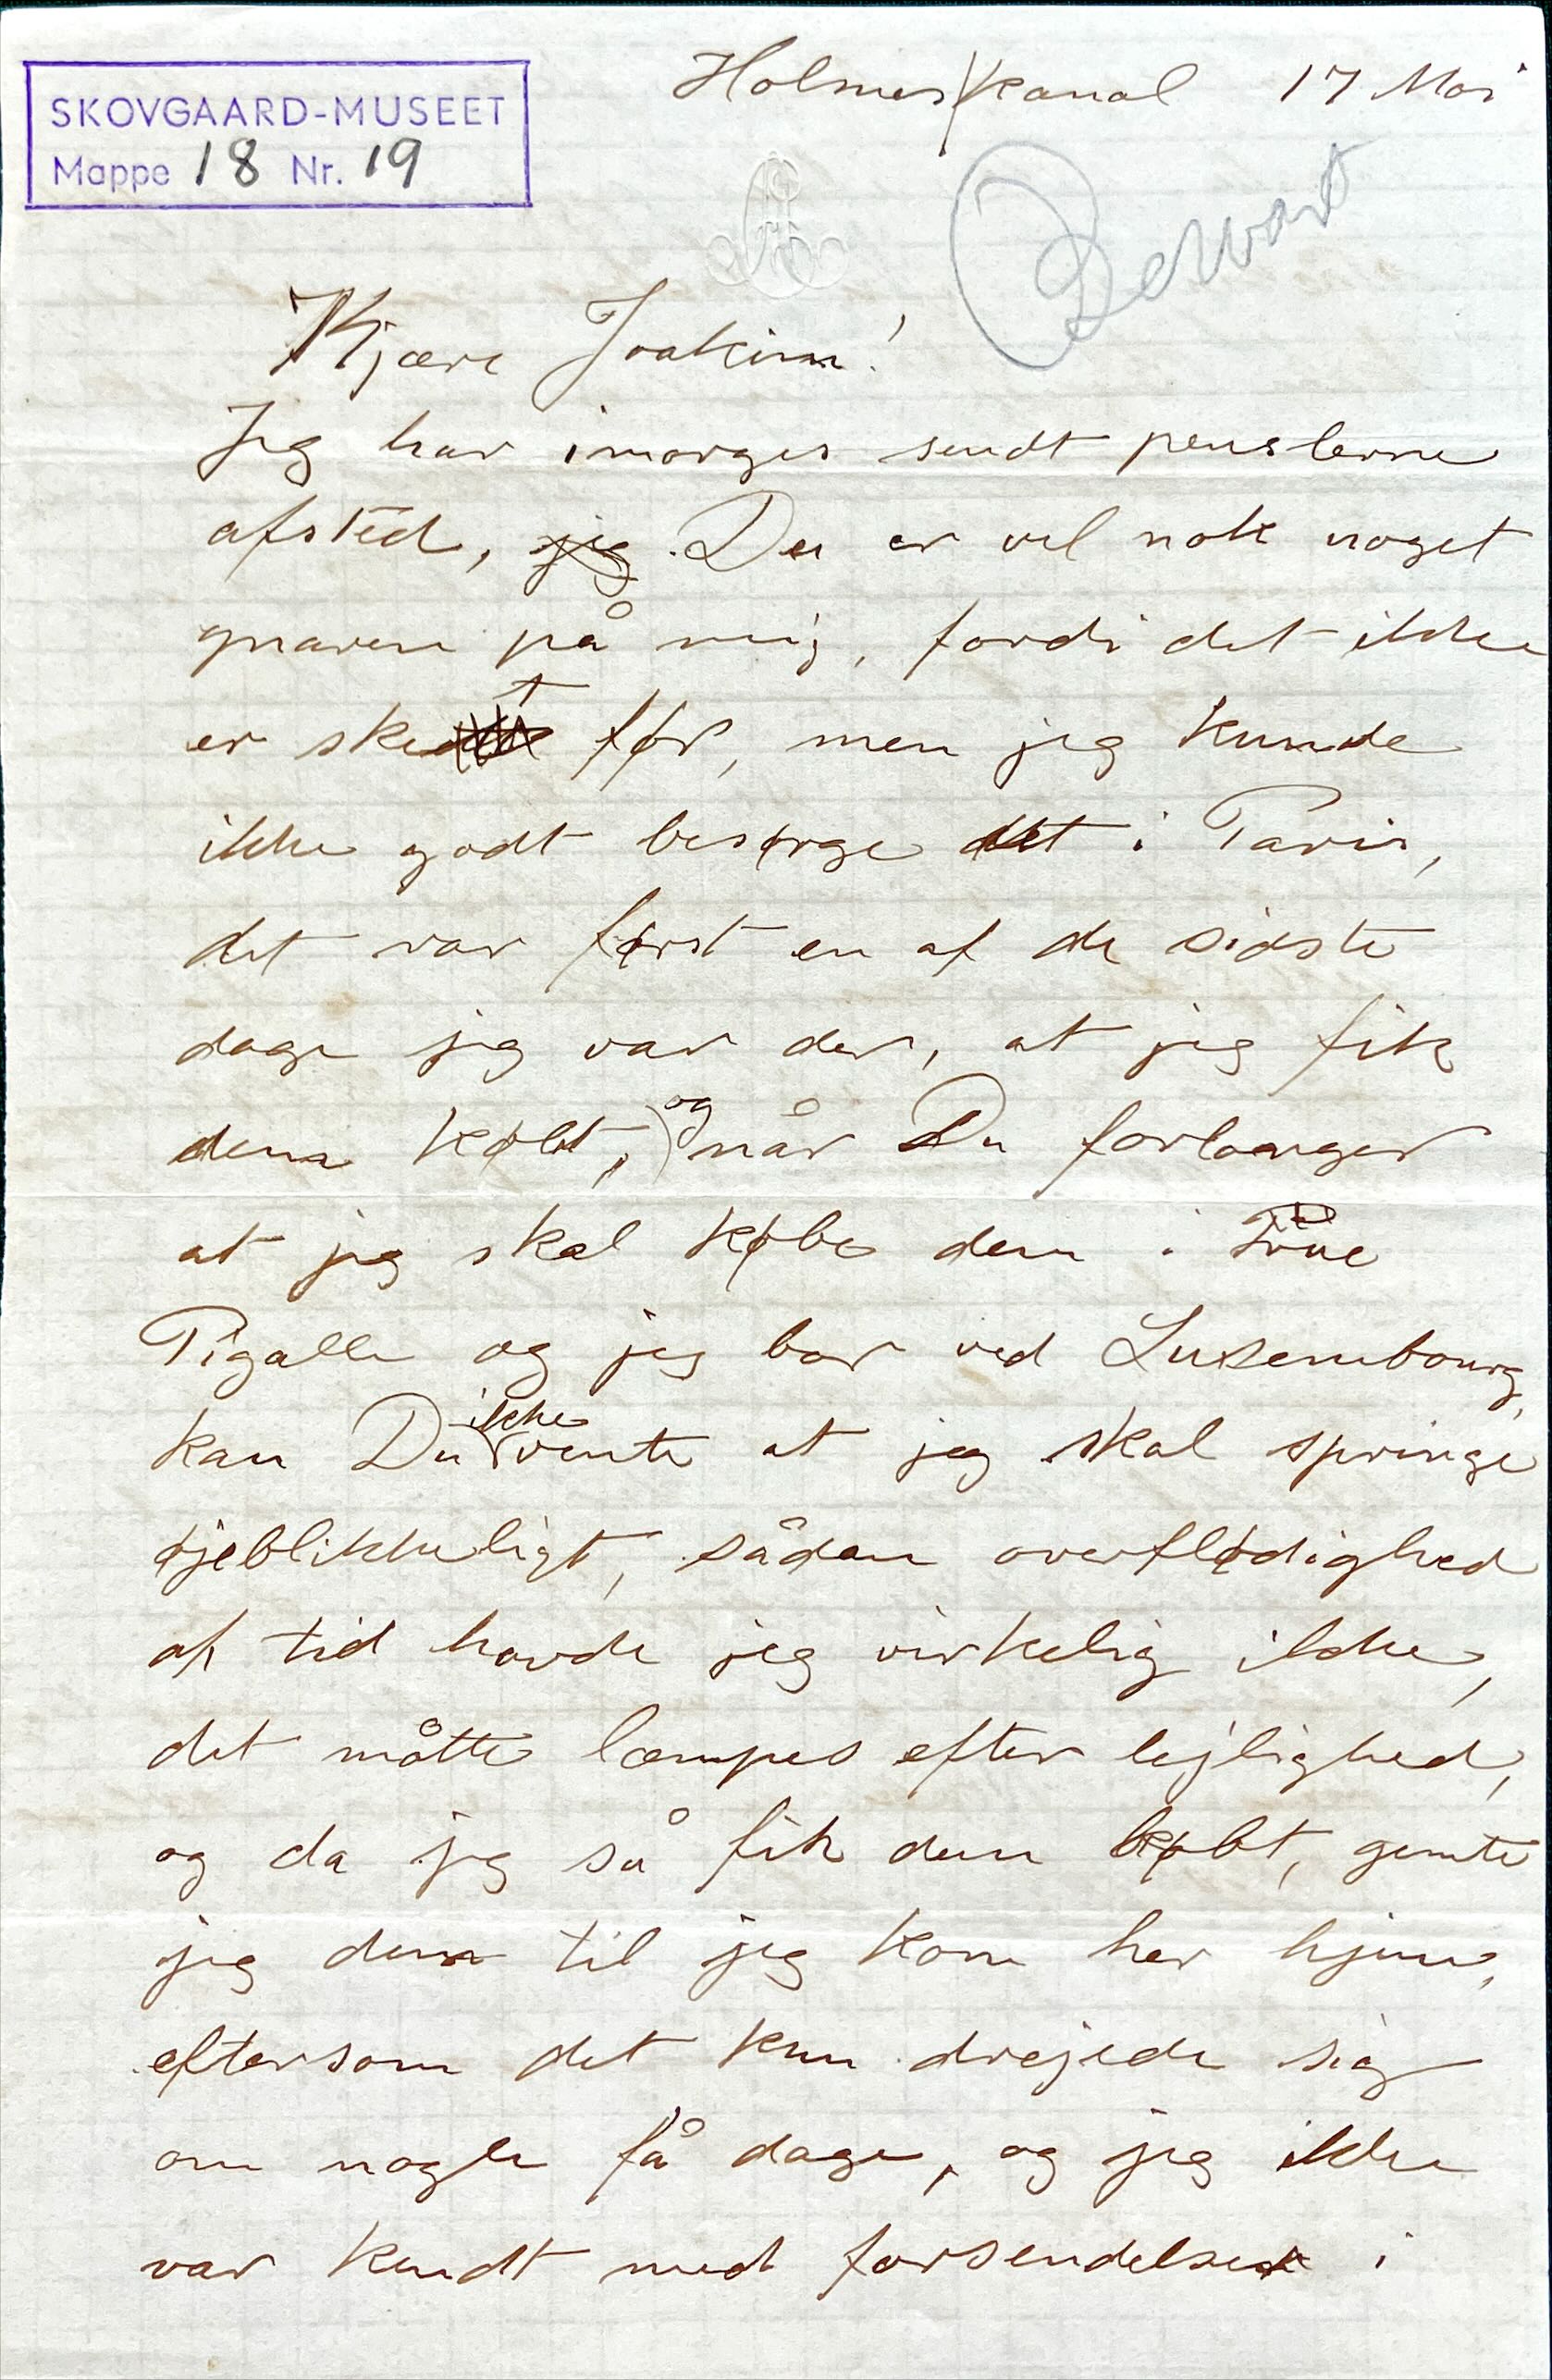 SKOVGAARD-MUSEET
Mappe 18 Nr. 19
Holmes kanal 17 Mai
Bevart
Kjære Joakim!
Jeg har imorges sendt penslerne
afsted, jeg Du er vel nok noget
gnaven på mig, fordi det ikke
er skedt før, men jeg kunde
ikke godt besørge det i Paris,
det var først en af de sidste
dage jeg var der, at jeg fik
dem købt, og når Du forlanger
at jeg skal købe dem i Rue
Pigalle og jeg bor ved Luxembourg,
kan Du ikke vente at jeg skal springe
øjeblikkeligt, sådan overflødighed
af tid havde jeg virkelig ikke,
det måtte læmpes efter lejlighed,
og da jeg så fik dem købt, gemte
jeg dem til jeg kom her hjem,
eftersom det kun drejede sig
om nogle få dage, og jeg ikke
var kendt med forsendelser i